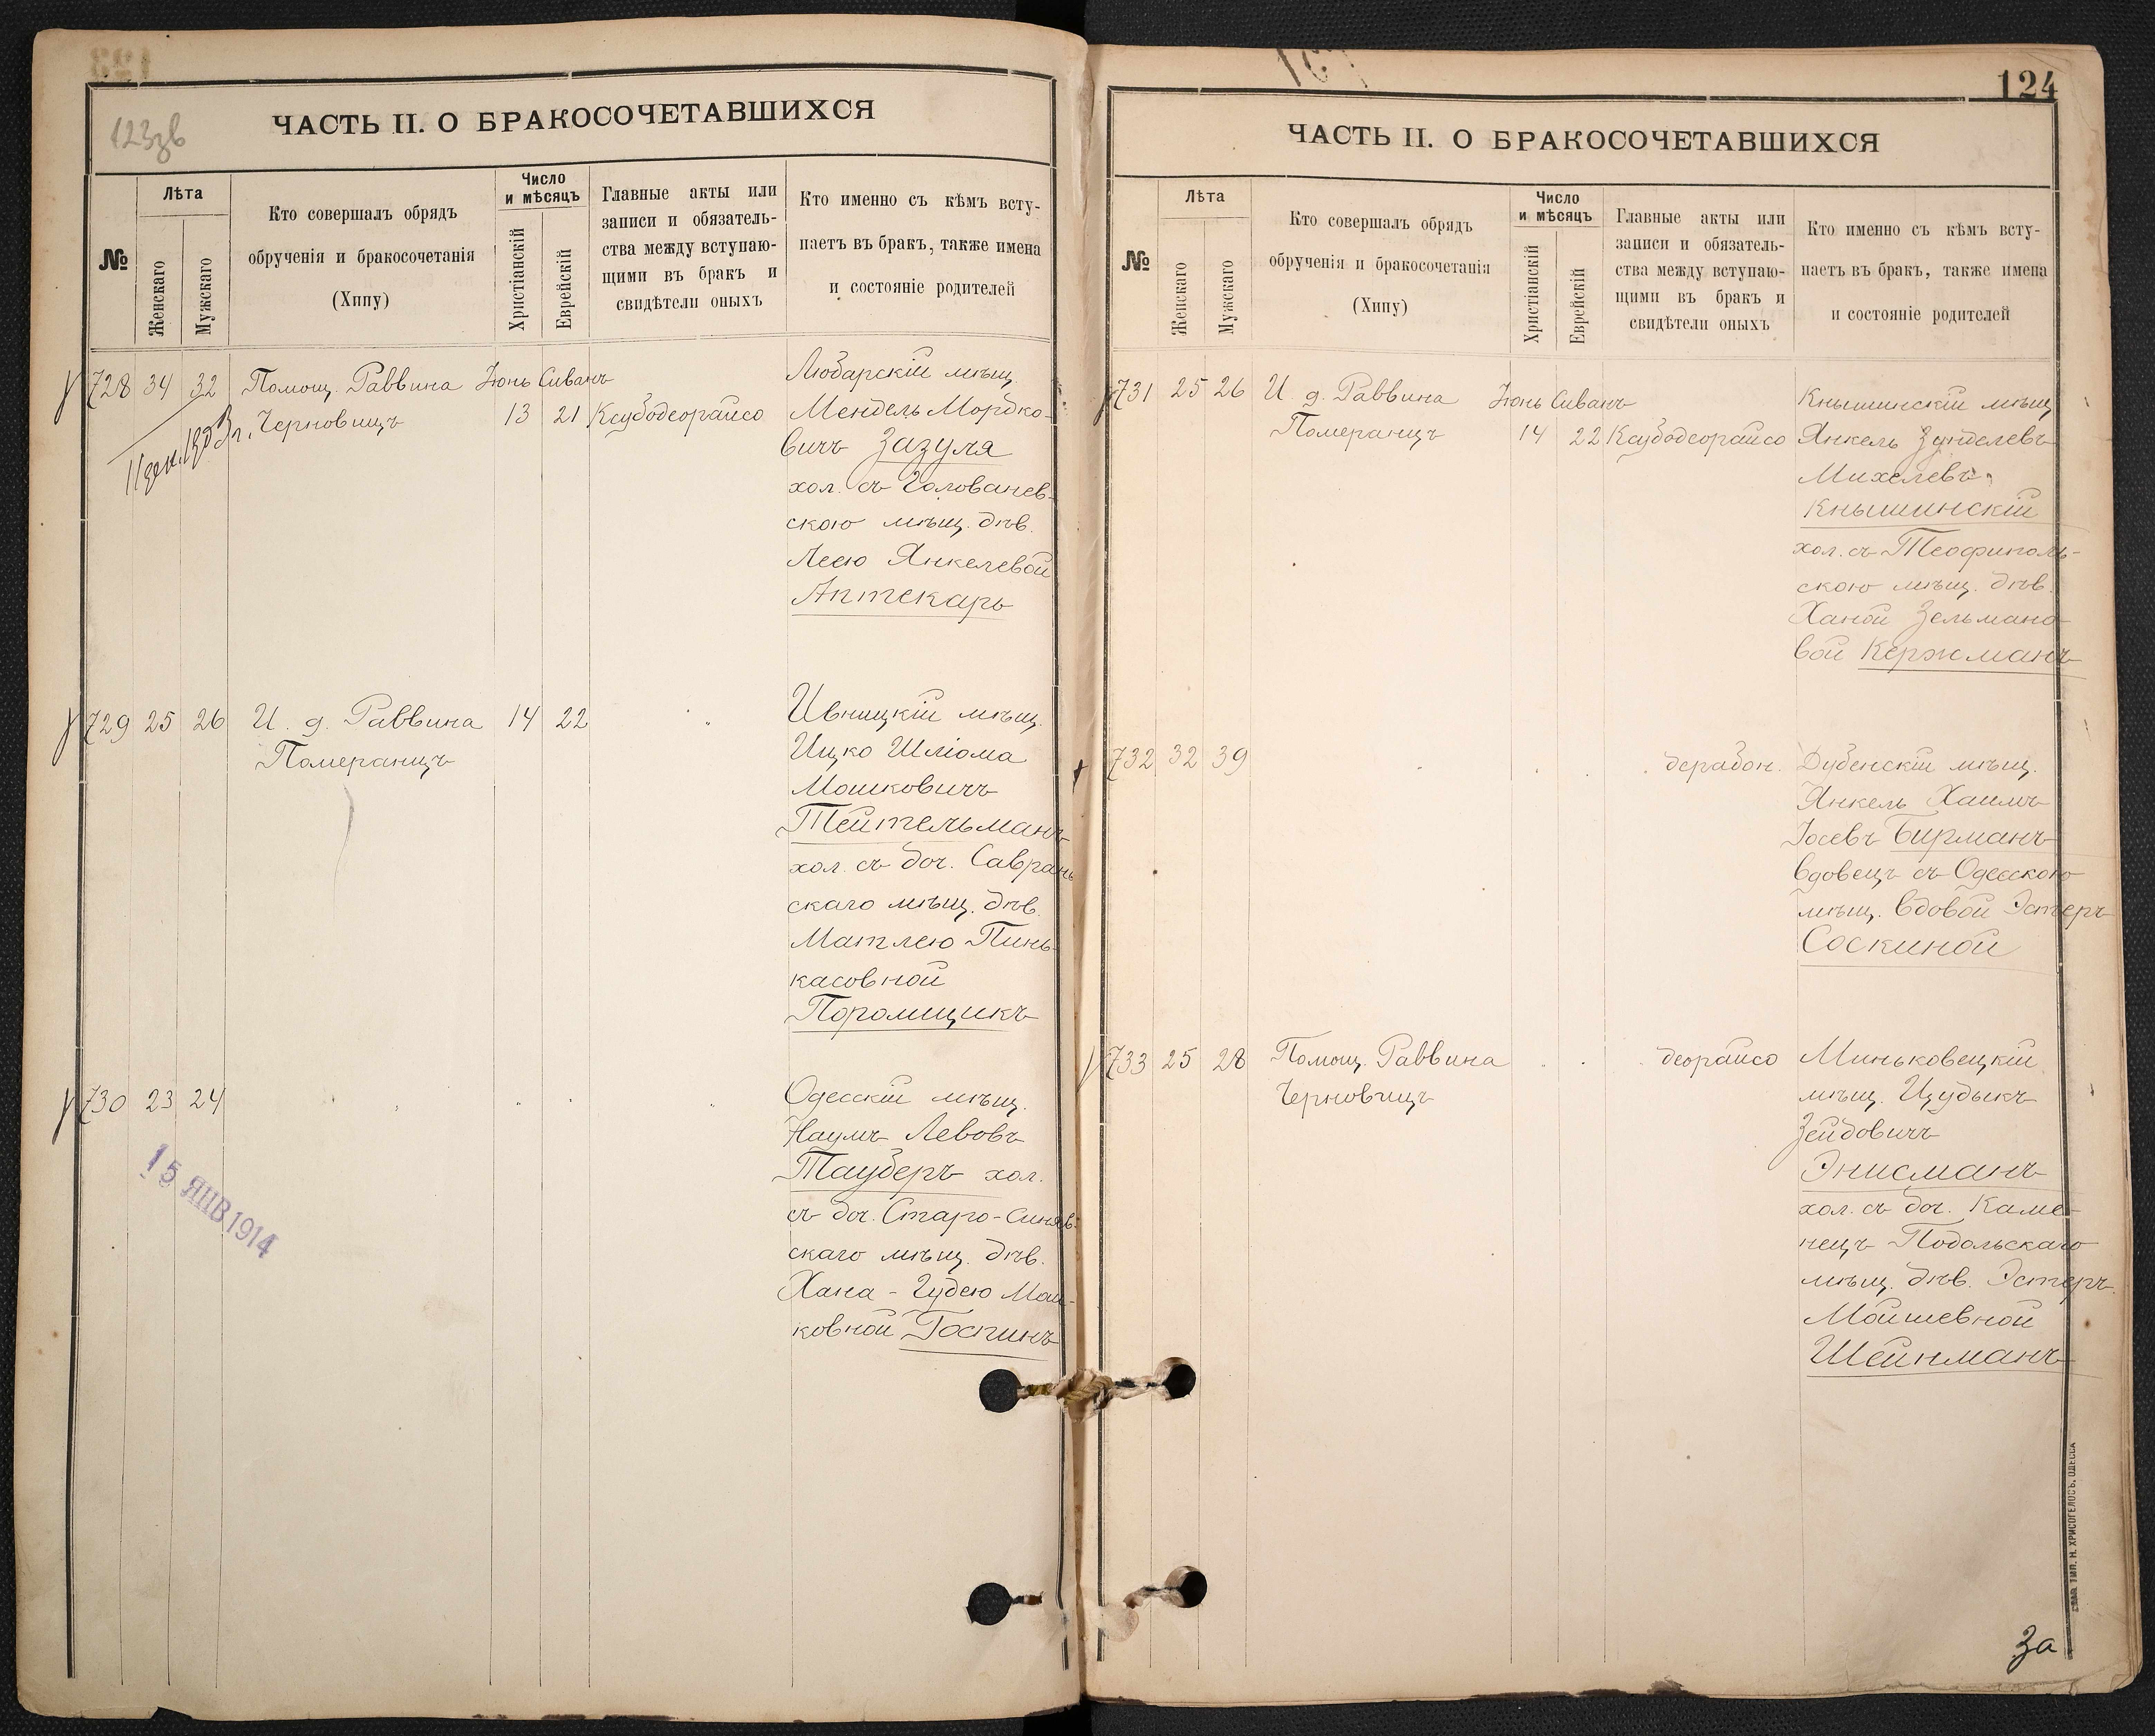 123зв
ЧАСТЬ II. О БРАКОСОЧЕТАВШИХСЯ
№
Лѣта
Женскаго
Мужскаго
Кто совершалъ обрядъ
обрученія и бракосочетанія
(Хипу)
Число
и мѣсяцъ
Христіанскій
Еврейскій
Главные акты или
записи и обязатель-
ства между вступаю-
щими въ бракъ и
свидѣтели оныхъ
Кто именно съ кѣмъ всту-
паетъ въ бракъ, также имена
и состояніе родителей
728 34 32 Помощ. Раввина Іюнь Сиванъ Любарскій мѣщ.
Черновицъ 13 21 Ксубодеорайсо Мендель Мордко-
вичъ Зазуля
хол. съ Голованев-
скою мѣщ. дѣв.
Леею Янкелевой
Аптекарь
729 25 26 И. д. Раввина 14 22 " Ивницкій мѣщ.
Померанцъ Ицко Шліома
Мошковичъ
Тейтельманъ
хол. съ доч. Савран
скаго мѣщ. дѣв.
Матлею Пинь-
касовной
Поромщикъ
730 23 24 " " " " Одесскій мѣщ.
Наумъ Левовъ
Тауберъ хол.
съ доч. Старо-Синяв-
скаго мѣщ. дѣв.
Хана-Гудею Мош-
ковной Госпинъ
15 ЯНВ 1914
124
ЧАСТЬ II. О БРАКОСОЧЕТАВШИХСЯ
№
Лѣта
Женскаго
Мужскаго
Кто совершалъ обрядъ
обрученія и бракосочетанія
(Хипу)
Число
и мѣсяцъ
Христіанскій
Еврейскій
Главные акты или
записи и обязатель-
ства между вступаю-
щими въ бракъ и
свидѣтели оныхъ
Кто именно съ кѣмъ всту-
паетъ въ бракъ, также имена
и состояніе родителей
731 25 26 И. д. Раввина Іюнь Сиванъ Кнышинскій мѣщ.
Померанцъ 14 22 Ксубодеорайсо Янкель Зунделевъ
Михелевъ
Кнышинскій
хол. съ Теофиполь-
скою мѣщ. дѣв.
Ханой Зельмано-
вой Кержманъ
732 32 39 " " " дерабон. Дубенскій мѣщ.
Янкель Хаимъ
Іосевъ Бирманъ
вдовецъ съ Одесскою
мѣщ. вдовой Эстеръ
Соскиной
733 25 28 Помощ. Раввина " " деорайсо Миньковецкій
Черновицъ мѣщ. Цудыкъ
Зейдовичъ
Энисманъ
хол. съ доч. Каме-
нецъ Подольскаго
мѣщ. дѣв. Эстеръ
Мойшевной
Шейнманъ
За